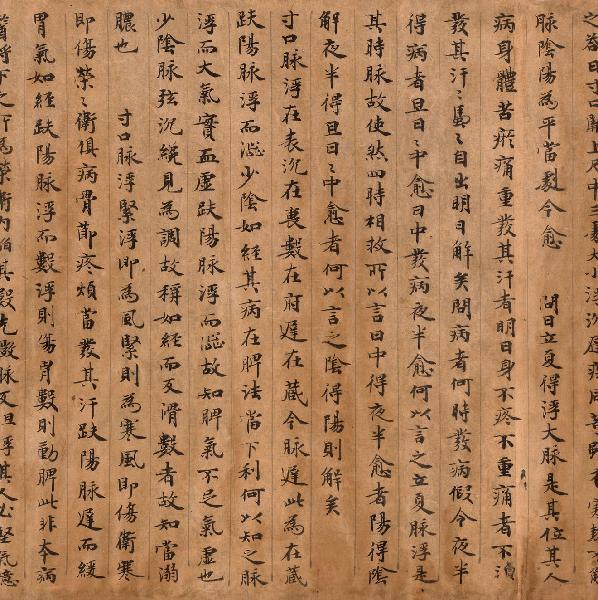 之答曰寸口關上尺中三處大小浮沉遲疾同等雖有寒熱不解
脉陰陽為平當劇今愈　問曰立夏得浮大脉是其位其人
病身體苦疼痛重發其汗者明日身不疼不重痛者不須
發其汗〻濈〻自出明日解矣問病者何時發病假令夜半
得病者旦日〻中愈日中發病夜半愈何以言之立夏脉浮是
其時脉故使然四時相救所以言日中得夜半愈者陽得陰
解夜半得旦日〻中愈者何以言之陰得陽則解矣
寸口脉浮在表沉在裏數在府遲在藏今脉遲此為在藏
趺陽脉浮而澁少陰如經其病在脾法當下利何以知之脉
浮而大氣實血虛趺陽脉浮而澁故知脾氣不足氣虛也
少陰脉弦沉纔見為調故稱如經而反滑數者故知當溺
膿也　寸口脉浮緊浮即為風緊則為寒風即傷衛寒
即傷榮〻衛俱病骨節疼煩當發其汗趺陽脉遲而緩
胃氣如經趺陽脉浮而數浮則傷胃數則動脾此非本病
醫將下之所為榮衛內陷其數先微脉反但浮其人必堅氣噫